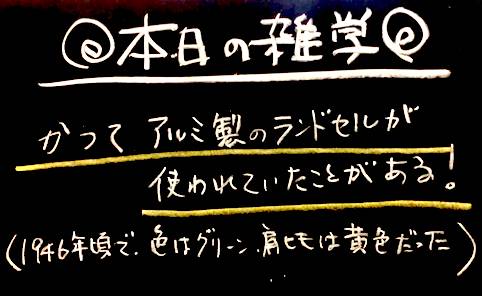 @本日の雑学@
かつて アルミ製のランドセルが
使われていたことがある!
(1946年頃で、色はグリーン、肩ヒモは黄色だった)